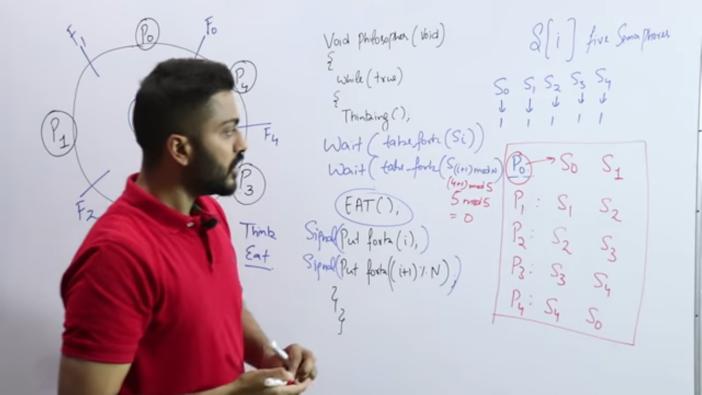 P0
F0
F1
P4
P1
F4
P3
F2
Think
Eat
Void Philosopher (void)
{
while (true)
{
Thinking();
Wait (takefork (Si))
Wait (takefork (S(i+1) mod N)
(4+1) mod 5
5 mod 5
= 0
EAT();
Signal (Put fork (i);)
Signal (Put fork ((i+1) % N);)
}
}
S[i] five Semaphores
S0 S1 S2 S3 S4
↓ ↓ ↓ ↓ ↓
1 1 1 1 1
P0 → S0 S1
P1 : S1 S2
P2 : S2 S3
P3 : S3 S4
P4 : S4 S0